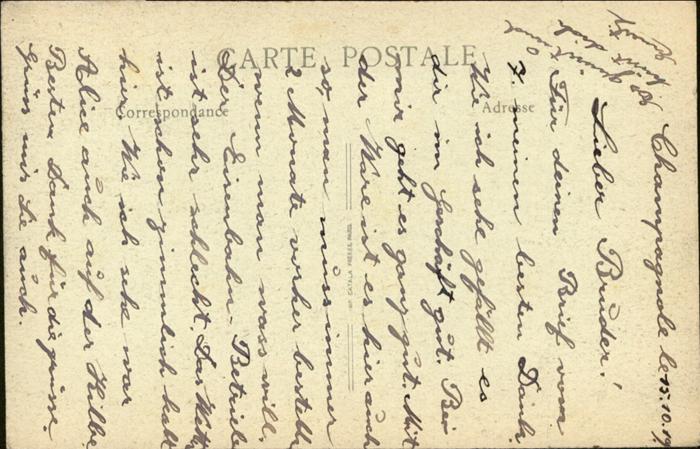 CARTE POSTALE
Correspondance
Adresse
Champagnole le 15.10.19
Lieber Bruder!
Für deinen Brief vom
7. meinen besten Dank.
Wie ich sehe gefällt es
dir im Geschäft gut. Bei
mir geht es ganz gut. Mit
der Ware ist es hier auch
so, man muss immer
2 Monate vorher bestell
wenn man wass will.
Der Eisenbahn-Betrieb
ist sehr schlecht. Das Wett
ist schon zimmlich kalt
hier. Wie ich sehe war
Alice auch auf der Kilbe
Besten Dank für die grüsse.
Grüss mir sie auch.